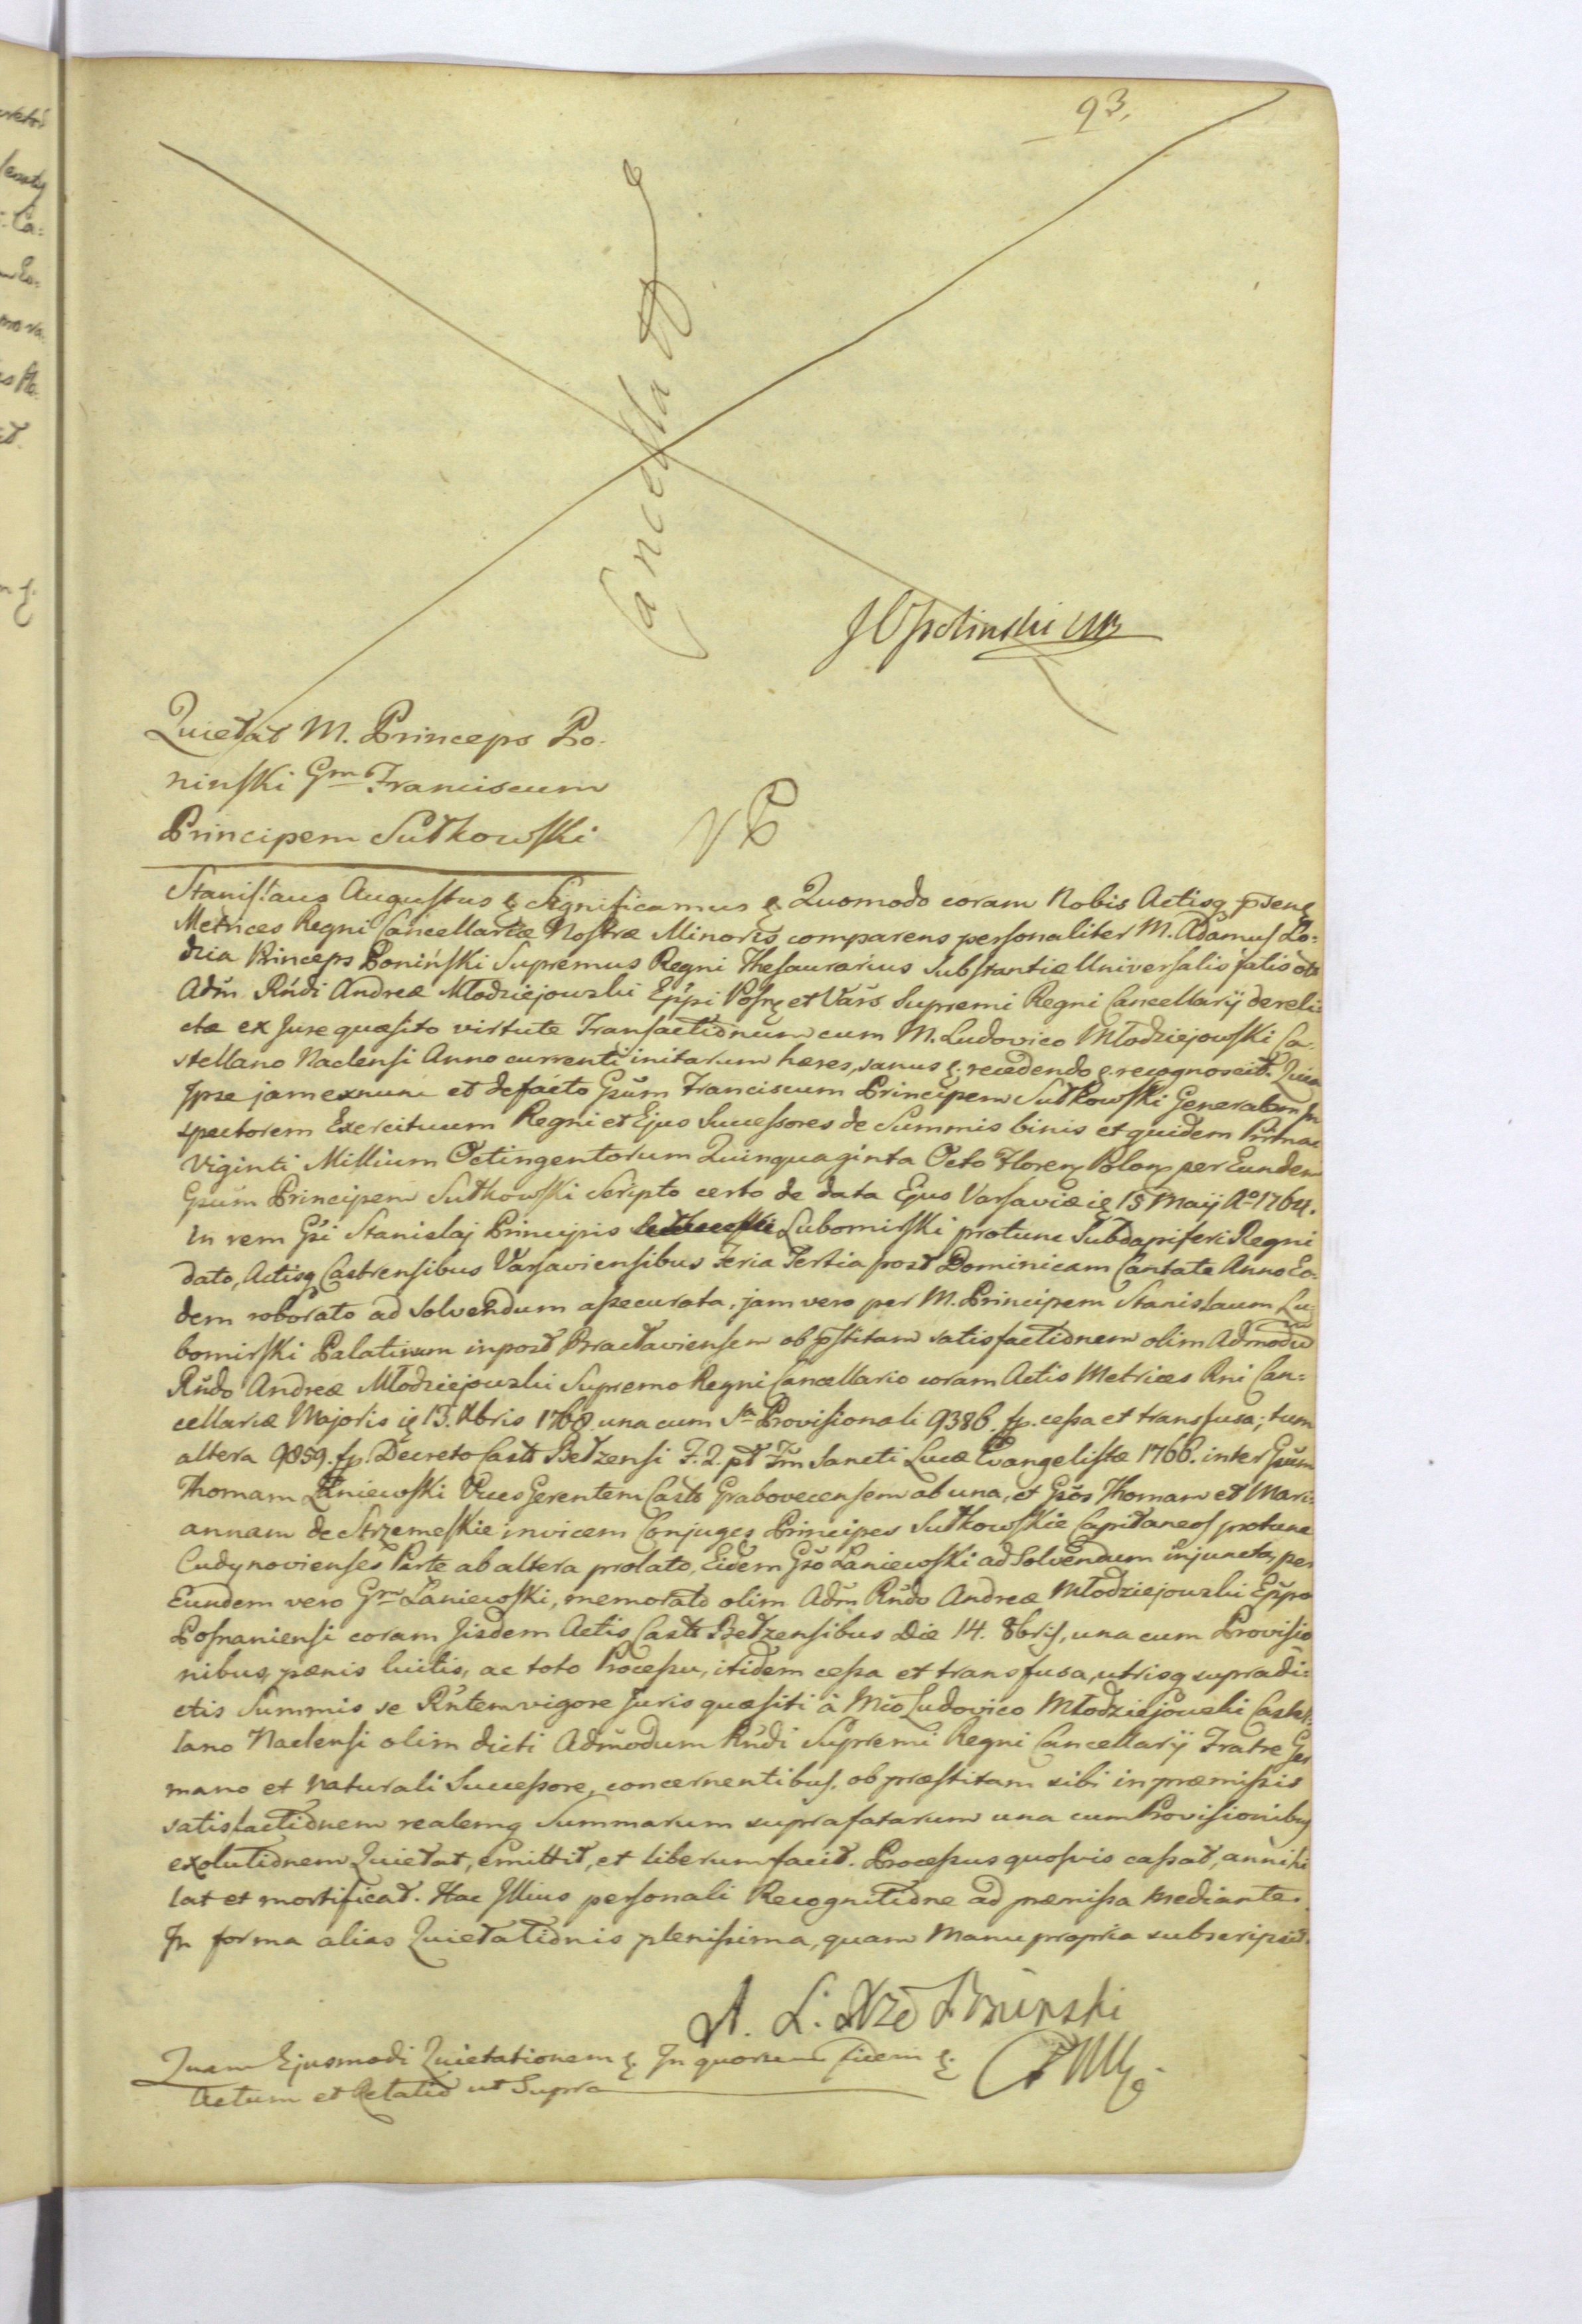 93.
Cancellat
Quietat M. Princeps Po-
ninski Gm Franciscum
Principem Sułkowski
Stanislaus Augustus & Significamus & Quomodo coram Nobis Actisq pseng
Metrices Regni Cancellariæ Nostræ Minoris comparens personaliter M. Adamus Lo:
dzia Princeps Poniński Supremus Regni Thesaurarius Substantiæ Universalis fatis
Adm Rndi Andreæ Młodziejowski Eppi Posn et Vars Supremi Regni Cancellarij dereli:
ctæ ex Jure quæsito virtute Transactionum cum M. Ludovico Młodziejowski Ca-
stellano Naclensi Anno currenti initarum hæres, sanus &. recedendo &. recognoscit. Quia
Ipse jam exnunc et defacto Gsum Franciscum Principem Sułkowski Generalem In
spectorem Exercituum Regni et Ejus Successores de Summis binis et quidem Prima
Viginti Millium Octingentorum Quinquaginta Octo Floren Polon per Eundem
Gsum Principem Sułkowski Scripto certo de data Ejus Varsaviæ 15 Maij Ao 1764.
in rem Gsi Stanislaj Principis Lubomirski protunc Subdapiferi Regni
dato, Actisq Castrensibus Varsaviensibus Feria Tertia post Dominicam Cantate Anno Eo-
dem roborato ad solvendum assecurata, jam vero per M. Principem Stanislaum Lu-
bomirski Palatinum inpost Bracłaviensem ob pstitam satisfactionem olim Admodu
Rndo Andreæ Młodziejowski Supremo Regni Cancellario coram Actis Metrices Rni Can=
cellariæ Majoris 13. Xbris 1768. una cum Provisionali 9386. fp. cessa et transfusa; tum
altera 9859. fp. Decreto Casts Bełzensi F. 2. pt Fm Sancti Lucæ Evangelistæ 1766. inter Gsum
Thomam Łaniewski Vices Gerentem Casts Grabovecensem ab una, et Gsos Thomam et Mari-
annam de Strzemeskie invicem Conjuges Principes Sułkowskie Capitaneos protunc
Cudynovienses Parte ab altera prolato, Eidem Gso Łaniewski ad Solvendum injuncta, per
Eundem vero Gm Łaniewski, memorato olim Adm Rndo Andreæ Młodziejowski Eppo
Posnaniensi coram Iisdem Actis Casts Bełzensibus Die 14. 8bris, una cum Provisio
nibus, pænis luitis, ac toto Processu, itidem cessa et transfusa, utrisq supradi-
ctis Summis se Rntem vigore Juris quæsiti à Mco Ludovico Młodziejowski Castel-
lano Naclensi olim dicti Admodum Rndi Supremi Regni Cancellarij Fratre Ger
mano et naturali Successore, concernentibus, ob præstitam sibi in præmissis
satisfactionem realemq Summarum suprafatarum una cum Provisionibus
exolutionem Quietat, emittit, et liberum facit. Processus quosvis cassat, annihi
lat et mortificat. Hac Illius personali Recognitione ad præmissa mediante.
In forma alias Quietationis plenissima, quam Manu propria subscripsit.
A. L. Xże Poninski
Quam Ejusmodi Quietationem &. In quorum fidem &.
Actum et Datum ut Supra